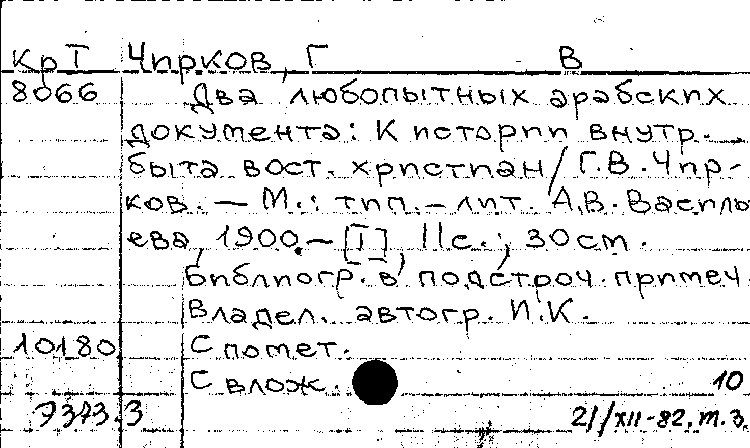 КрТ Чирков, Г В
8066 Два любопытных арабских
документа: К истории внутр.
быта вост. христиан/Г.В.Чир-
ков. — М.: тип.-лит. А.В.Василь
ева, 1900.— [I], 11с.; 30см.
Библиогр. в подстроч. примеч.
Владел. автогр. И.К.
10180 С помет.
С влож. 10
7373.3 21/XII-82, т.3.